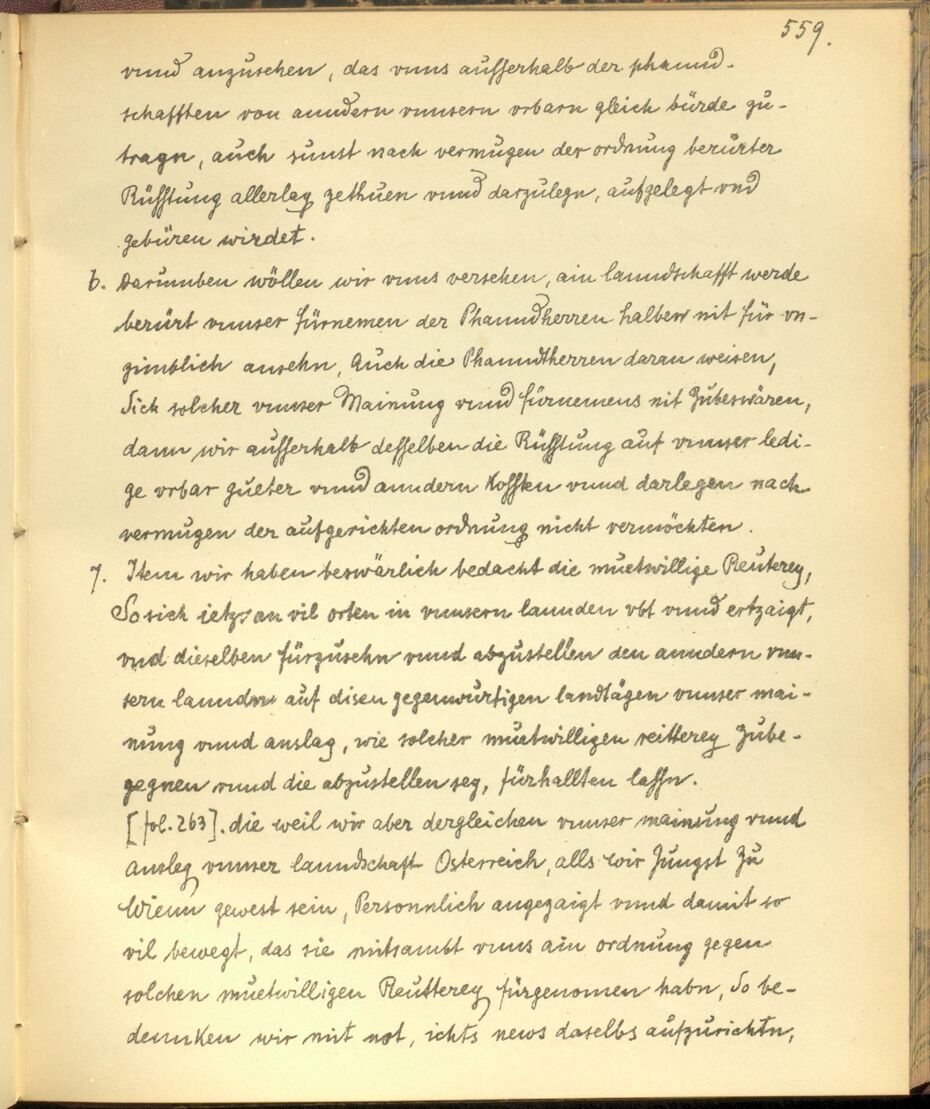 559.
vnnd anzusehen, das vnns ausserhalb der phannd-
schafften von anndern vnnsern vrbarn gleich bürde zu-
tragn, auch sunst nach vermugen der ordnung berürter
Rüsstung allerlag zethuen vnnd darzulegn, aufgelegt vnd
gebüren wirdet.
6. Darumben wöllen wir vnns versehen, ain lanndschafft werde
berürt vnnser fürnemen der Phanndherren halben nit für vn-
zimblich ansehn, Auch die Phanndtherren daran weisen,
Sich solcher vnnser Mainung vnnd fürnemens nit Zubeswären,
dann wir ausserhalb desselben die Rüsstung auf vnnser ledi-
ge vrbar gueter vnnd anndern Kossten vnnd darlegen nach
vermugen der aufgerichten ordnung nicht vermöchten.
7. Item wir haben beswärlich bedacht die muetwillige Reuterey,
So sich ietz an vil orten in vnnsern lannden vbt vnnd ertzaigt,
vnd dieselben fürzusehn vnnd abzustellen den anndern vnn-
sern lanndn auf disen gegenwürtigen landtägen vnnser mai-
nung vnnd anslag, wie solcher muetwilligen reitterey Zube-
gegnen vnnd die abzustellen sey, fürhallten lassn.
[fol. 263]. die weil wir aber dergleichen vnnser mainung vnnd
Ansleg vnnser lanndschaft Osterreich, alls wir Jungst Zu
Wienn gewest sein, Personnlich angezaigt vnnd damit so
vil bewegt, das sie mitsambt vnns ain ordnung gegen
solchen muetwilligen Reutterey fürgenomen habn, So be-
dennken wir mit not, ichts news daselbs aufzurichtn,